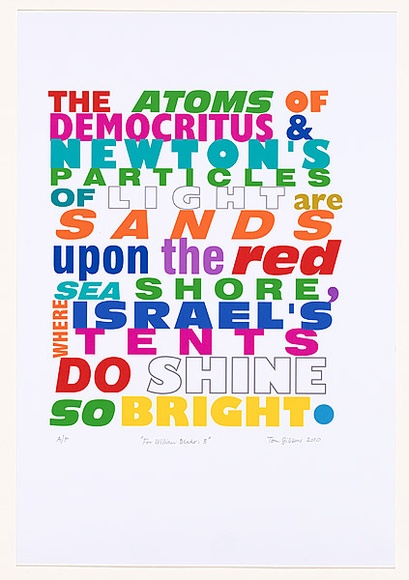 THE ATOMS OF
DEMOCRITUS &
NEWTON'S
PARTICLES
OF LIGHT are
SANDS
upon the red
SEA SHORE,
WHERE ISRAEL'S
TENTS
DO SHINE
SO BRIGHT.
A/P "For William Blake: 3" Tom Gibbons 2010